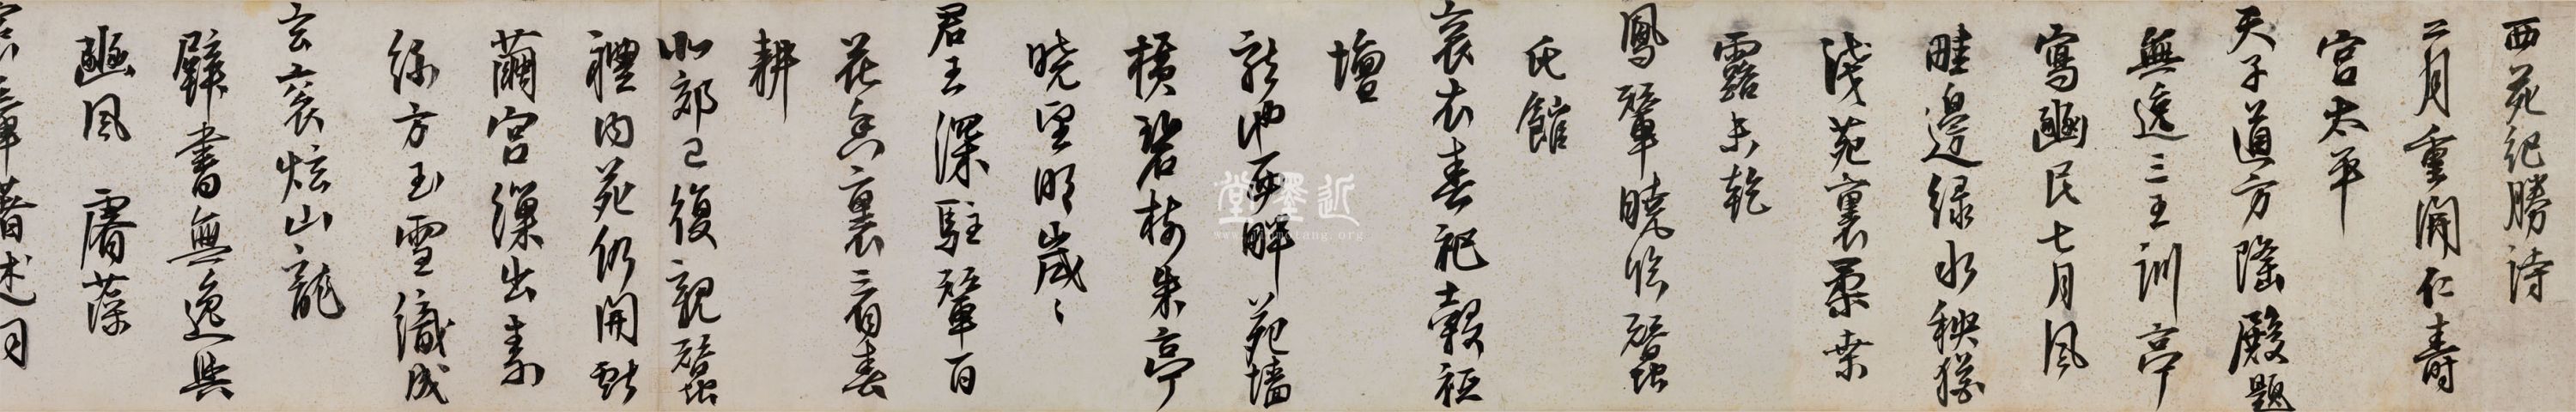 西苑紀勝詩
二月重開仁壽
宮太平
天子道方隆殿題
無逸三王訓亭
寫豳民七月風
畦邊綠水秧猶
淺苑裏柔桑
露未乾
鳳輦曉臨蠶
氏館
袞衣春祀穀祗
壇
龍池西畔苑墻
橫碧樹朱亭
曉望明歲〻
君王深駐輦百
花香裏看春
耕
郊已復親蠶
禮內苑仍開獻
繭宮繅出素
絲方玉雪織成
玄袞炫山龍
辟書無逸與
豳風 睿藻
述
近墨堂